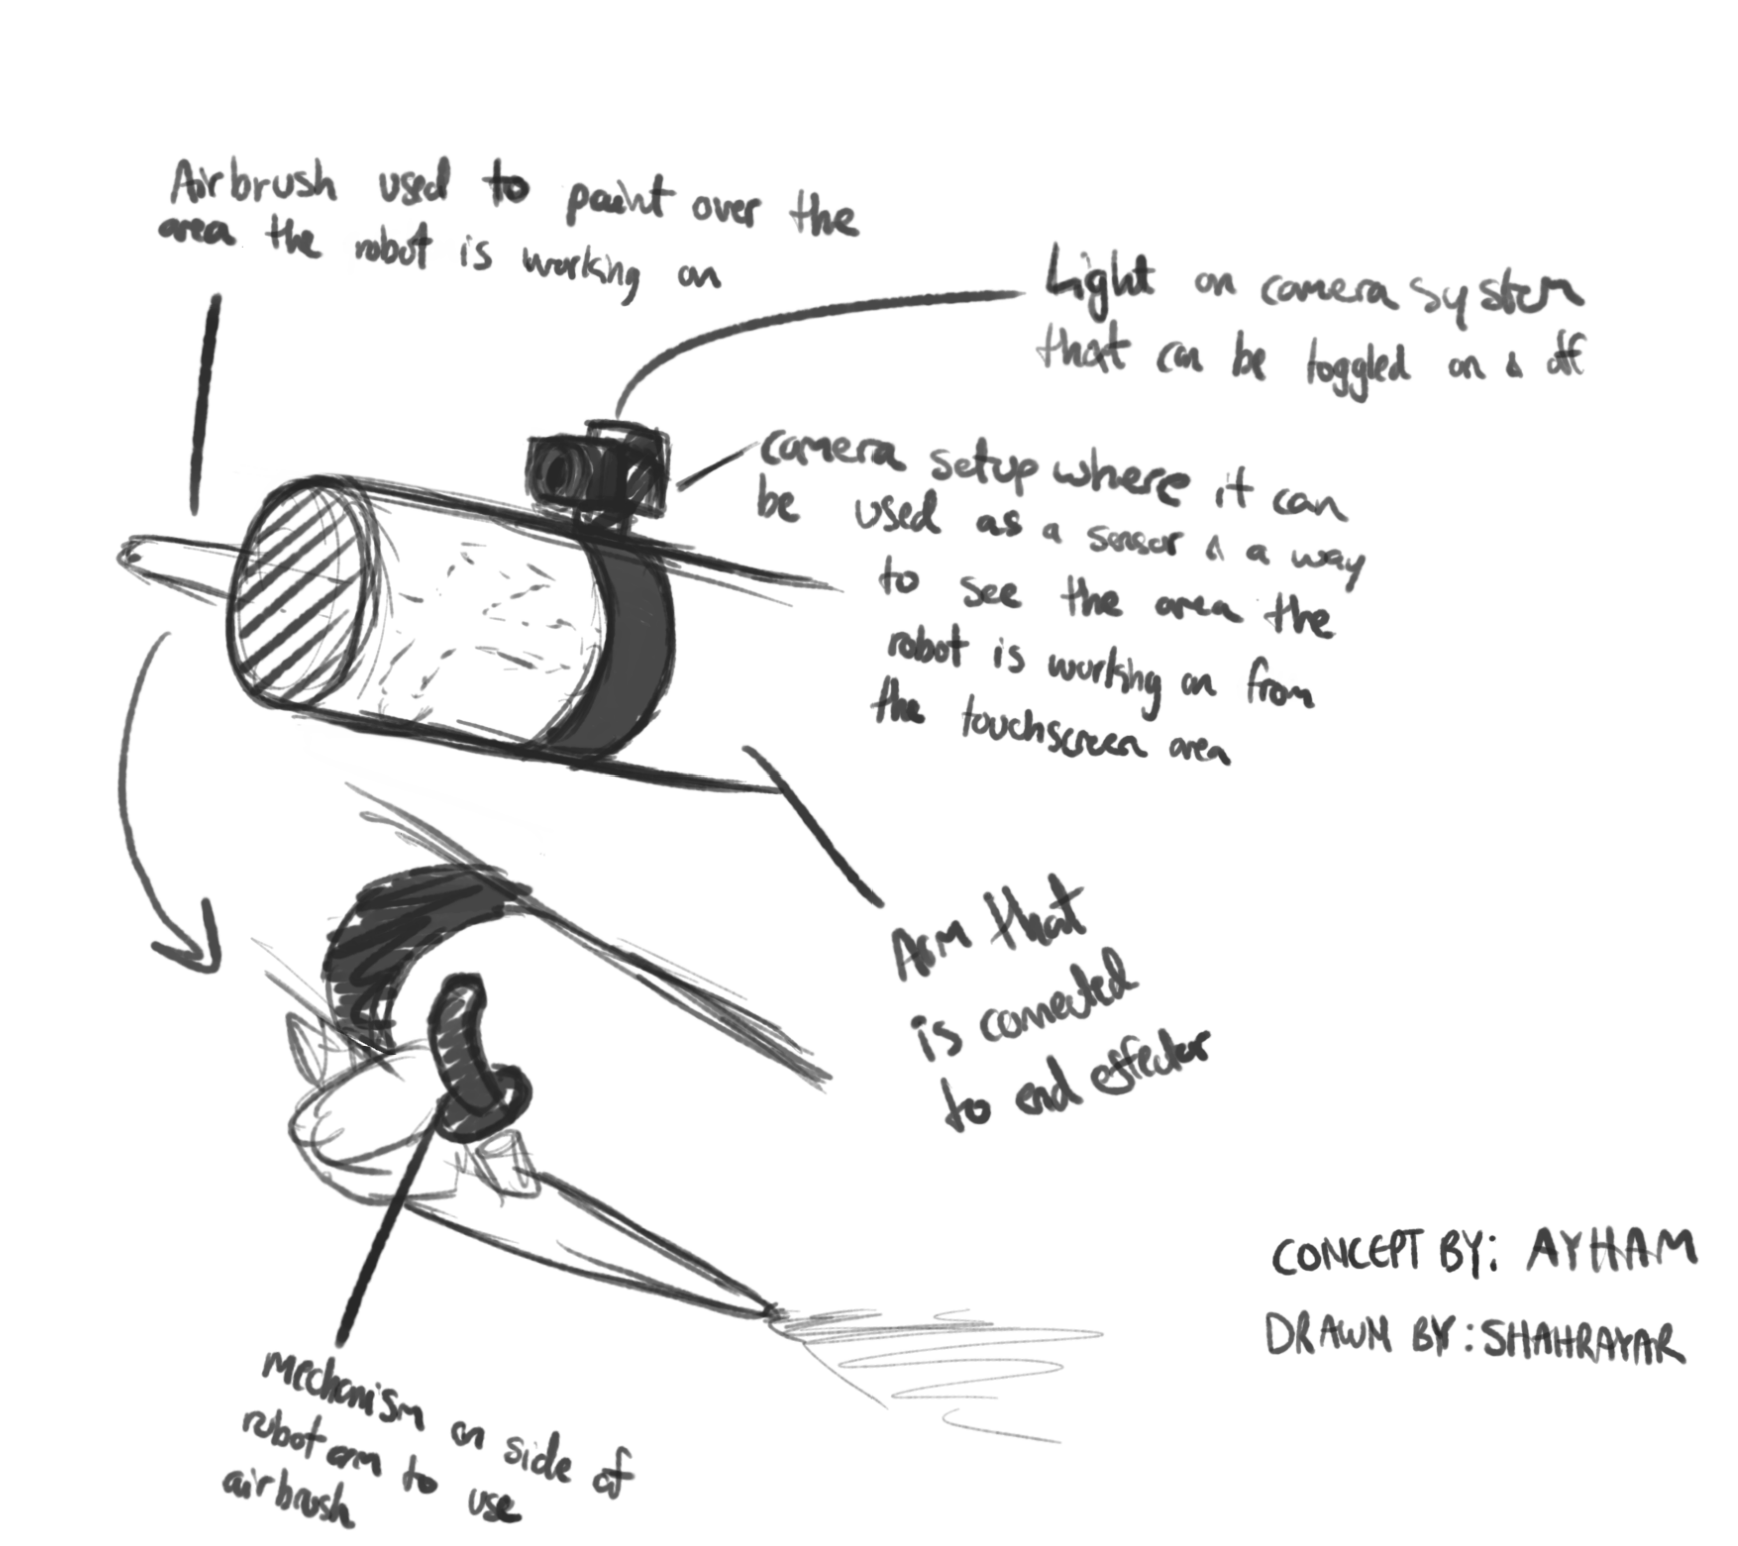 Airbrush used to paint over the
area the robot is working on
Light on camera system
that can be toggled on & off
camera setup where it can
be used as a sensor & a way
to see the area the
robot is working on from
the touchscreen area
Arm that
is connected
to end effector
Mechanism on side of
robot arm to use
airbrush
CONCEPT BY: AYHAM
DRAWN BY: SHAHRAYAR